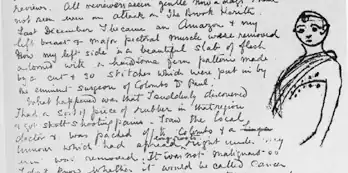 reviews. All reviewers seem gentle nowadays. I have
not seen even an attack on The Brook Kerith.
Last December I became an Amazon & my
left breast & major pectoral muscle were removed
Now my left side is a beautiful slab of flesh
adorned with a handsome fern pattern made
by a cut & 30 stitches which were put in by
the eminent surgeon of Colombo Dr Paul.
What happened was that I suddenly discovered
I had a sort of piece of rubber in that region
& got shooting pains. I saw the local
doctor & was packed off to Colombo & a
tumour which had spread right under my
arm was removed. It was not malignant so
I don't know whether it would be called Cancer